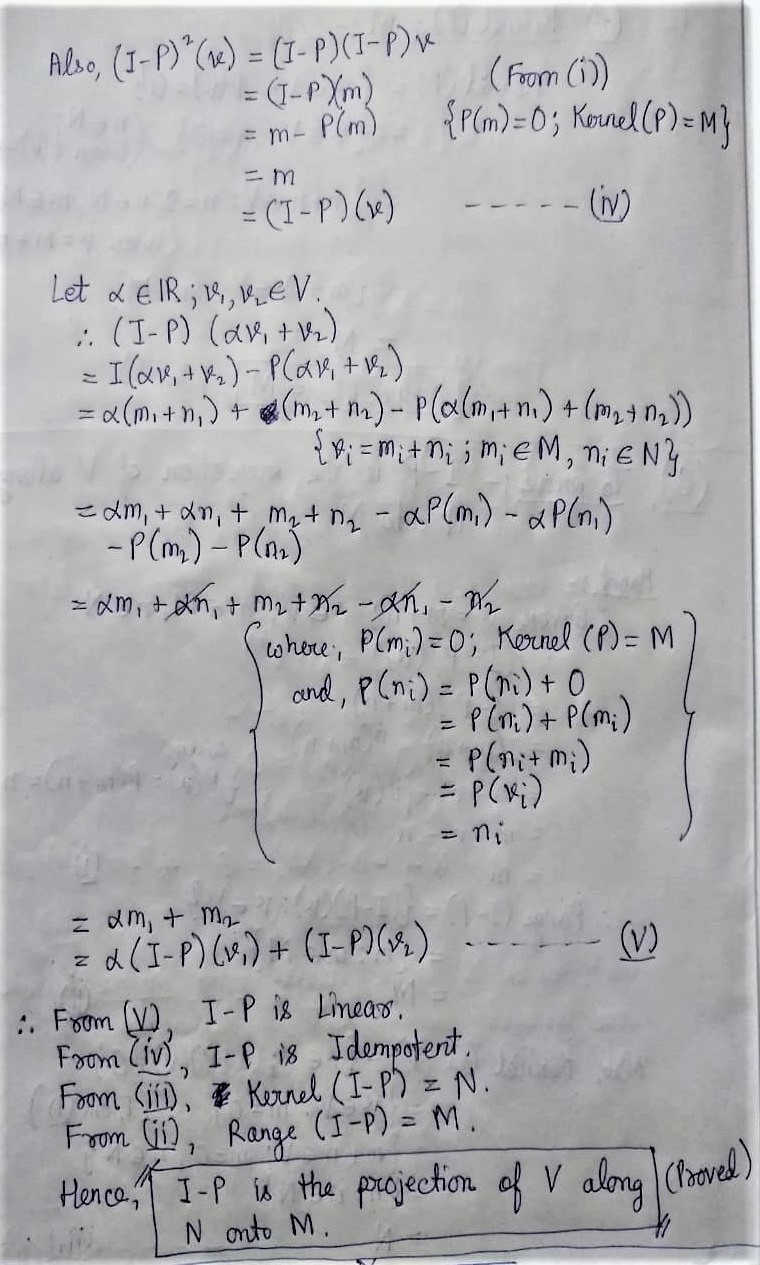 Also, (I-P)²(v) = (I-P)(I-P)v
= (I-P)(m) (From (i))
= m - P(m) {P(m)=0; Kernel(P)=M}
= m
= (I-P)(v) ----- (iv)
Let α ∈ IR; v₁, v₂ ∈ V.
∴ (I-P) (αv₁ + v₂)
= I(αv₁ + v₂) - P(αv₁ + v₂)
= α(m₁+n₁) + (m₂+n₂) - P(α(m₁+n₁) + (m₂+n₂))
{vᵢ = mᵢ+nᵢ ; mᵢ ∈ M, nᵢ ∈ N}
= αm₁ + αn₁ + m₂ + n₂ - αP(m₁) - αP(n₁)
- P(m₂) - P(n₂)
= αm₁ + αn₁ + m₂ + n₂ - αn₁ - n₂
{where, P(mᵢ)=0; Kernel (P) = M
and, P(nᵢ) = P(nᵢ) + 0
= P(nᵢ) + P(mᵢ)
= P(nᵢ + mᵢ)
= P(vᵢ)
= nᵢ}
= αm₁ + m₂
= α(I-P)(v₁) + (I-P)(v₂) -------- (V)
∴ From (V), I-P is Linear.
From (iv), I-P is Idempotent.
From (iii), Kernel (I-P) = N.
From (ii), Range (I-P) = M.
Hence, I-P is the projection of V along (Proved)
N onto M.